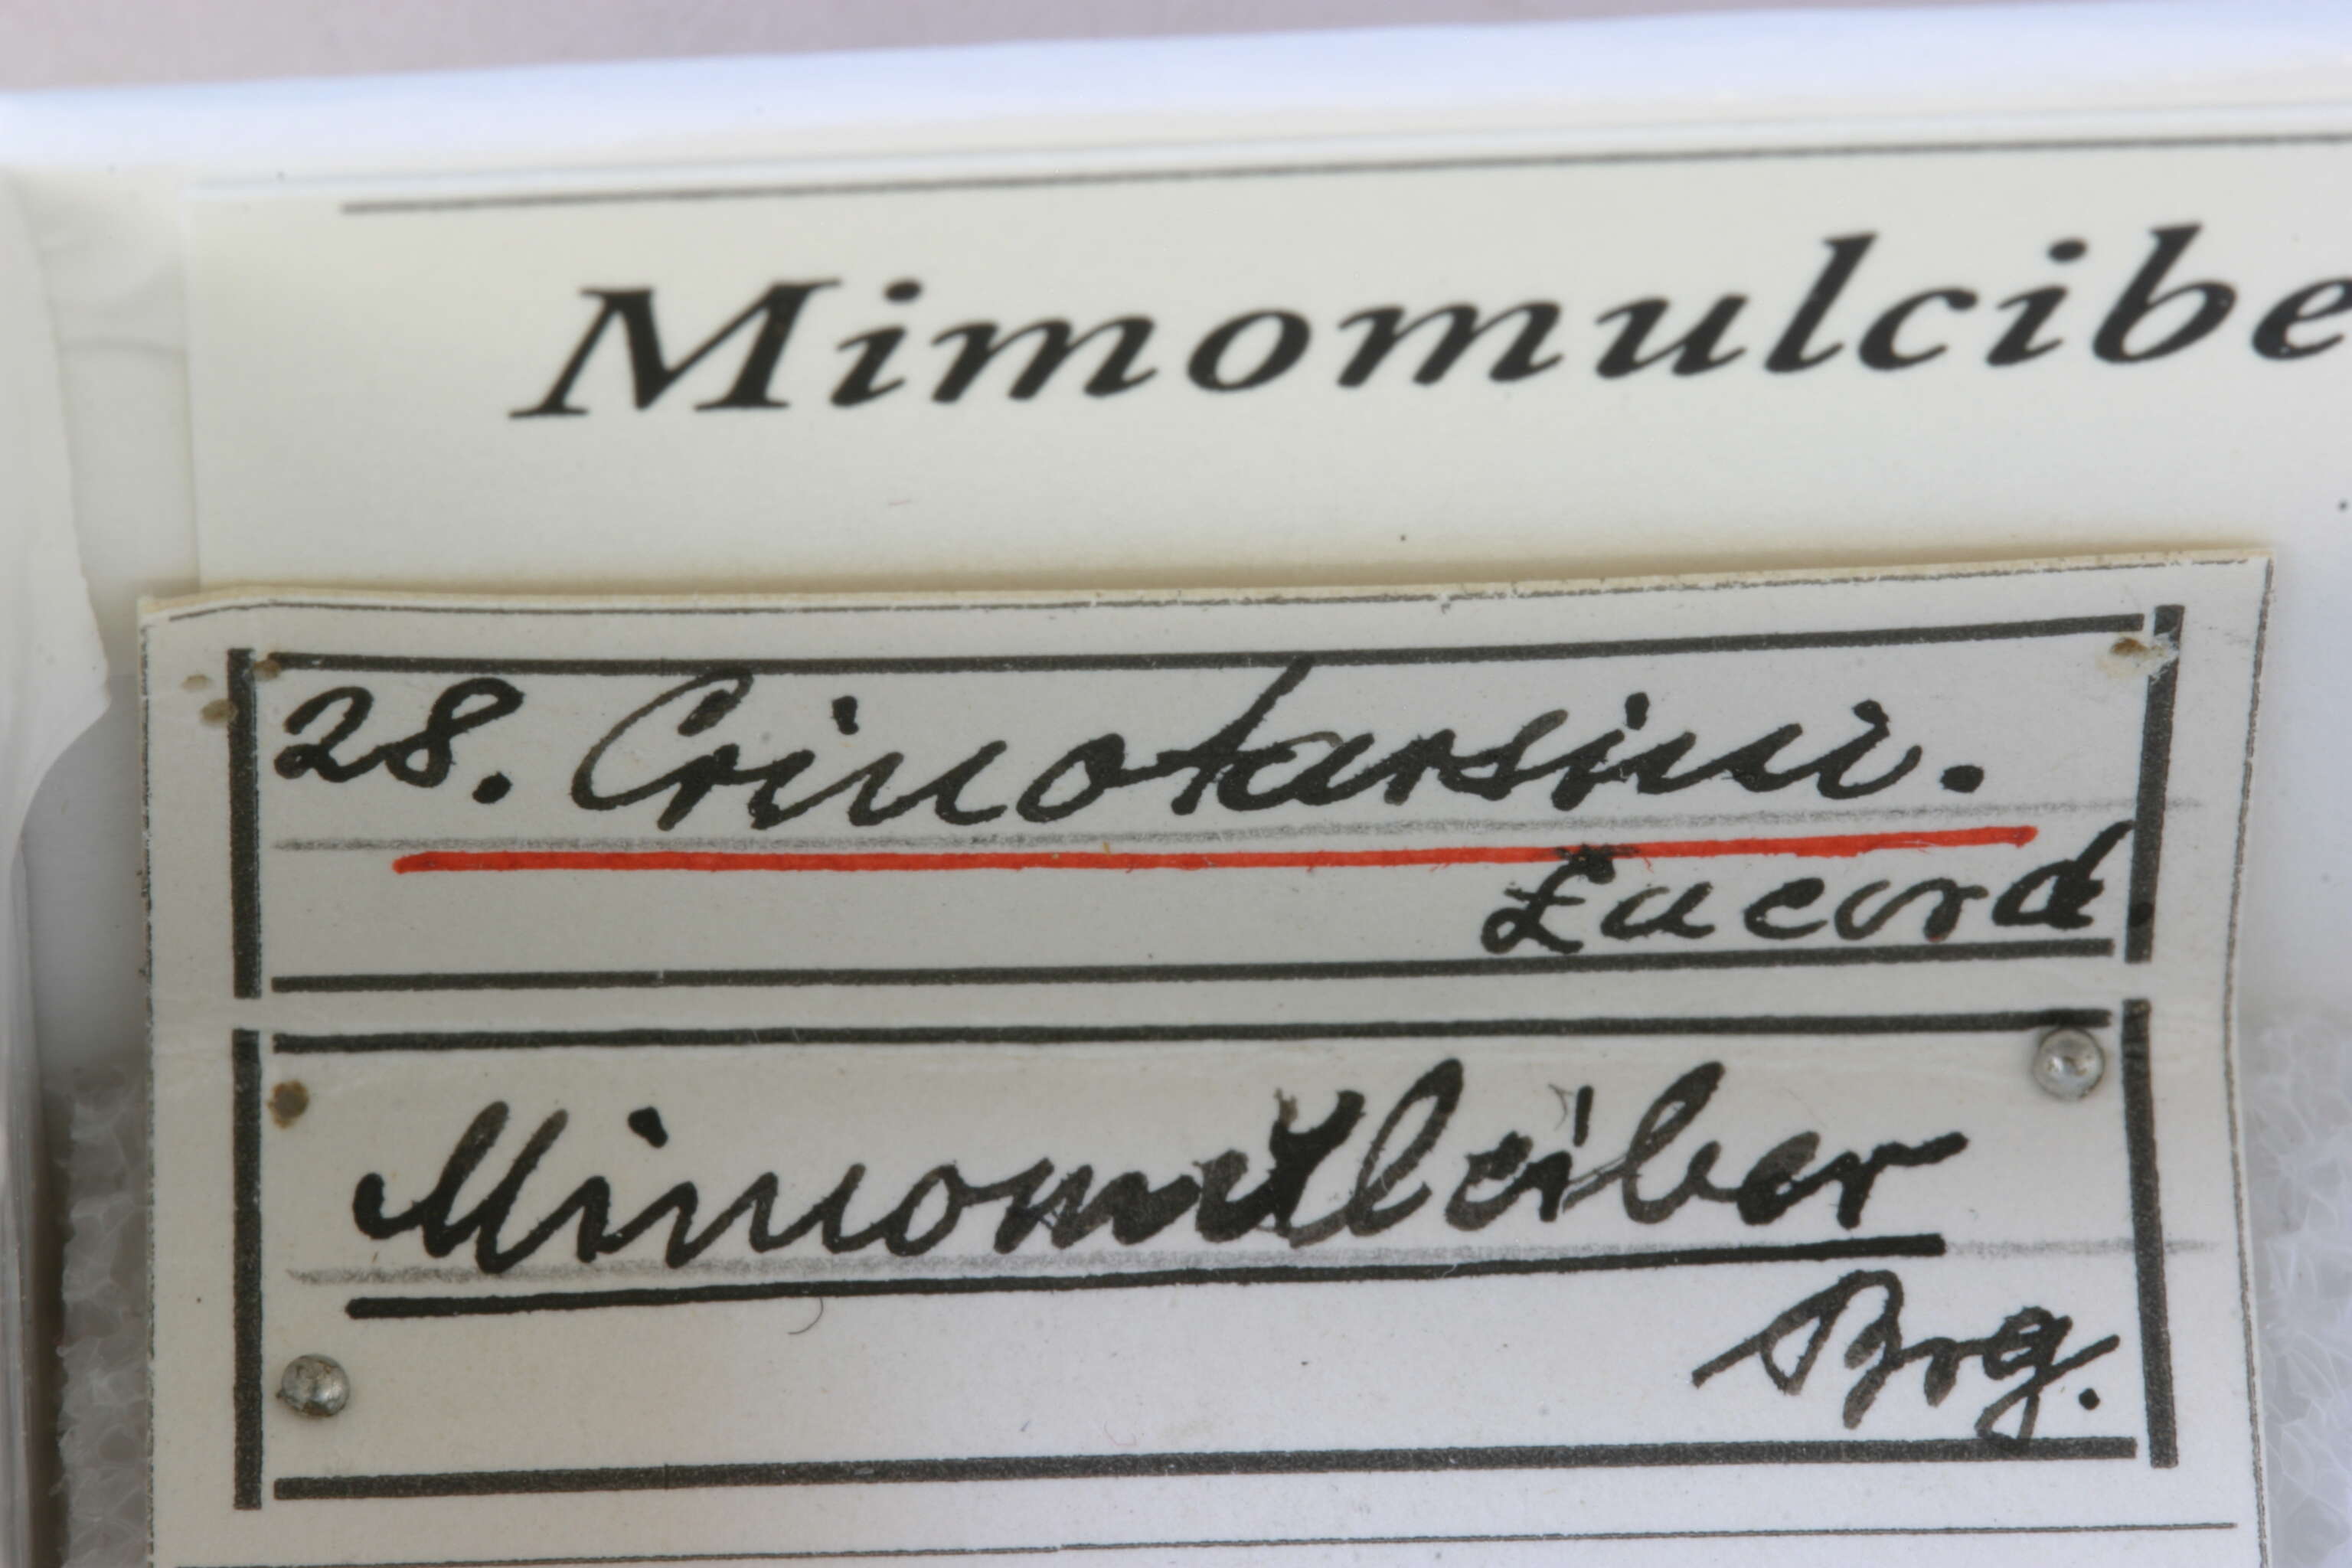 Mimomulcibe
28. Crinotarsini.
Lacord.
Mimomulciber
Brg.